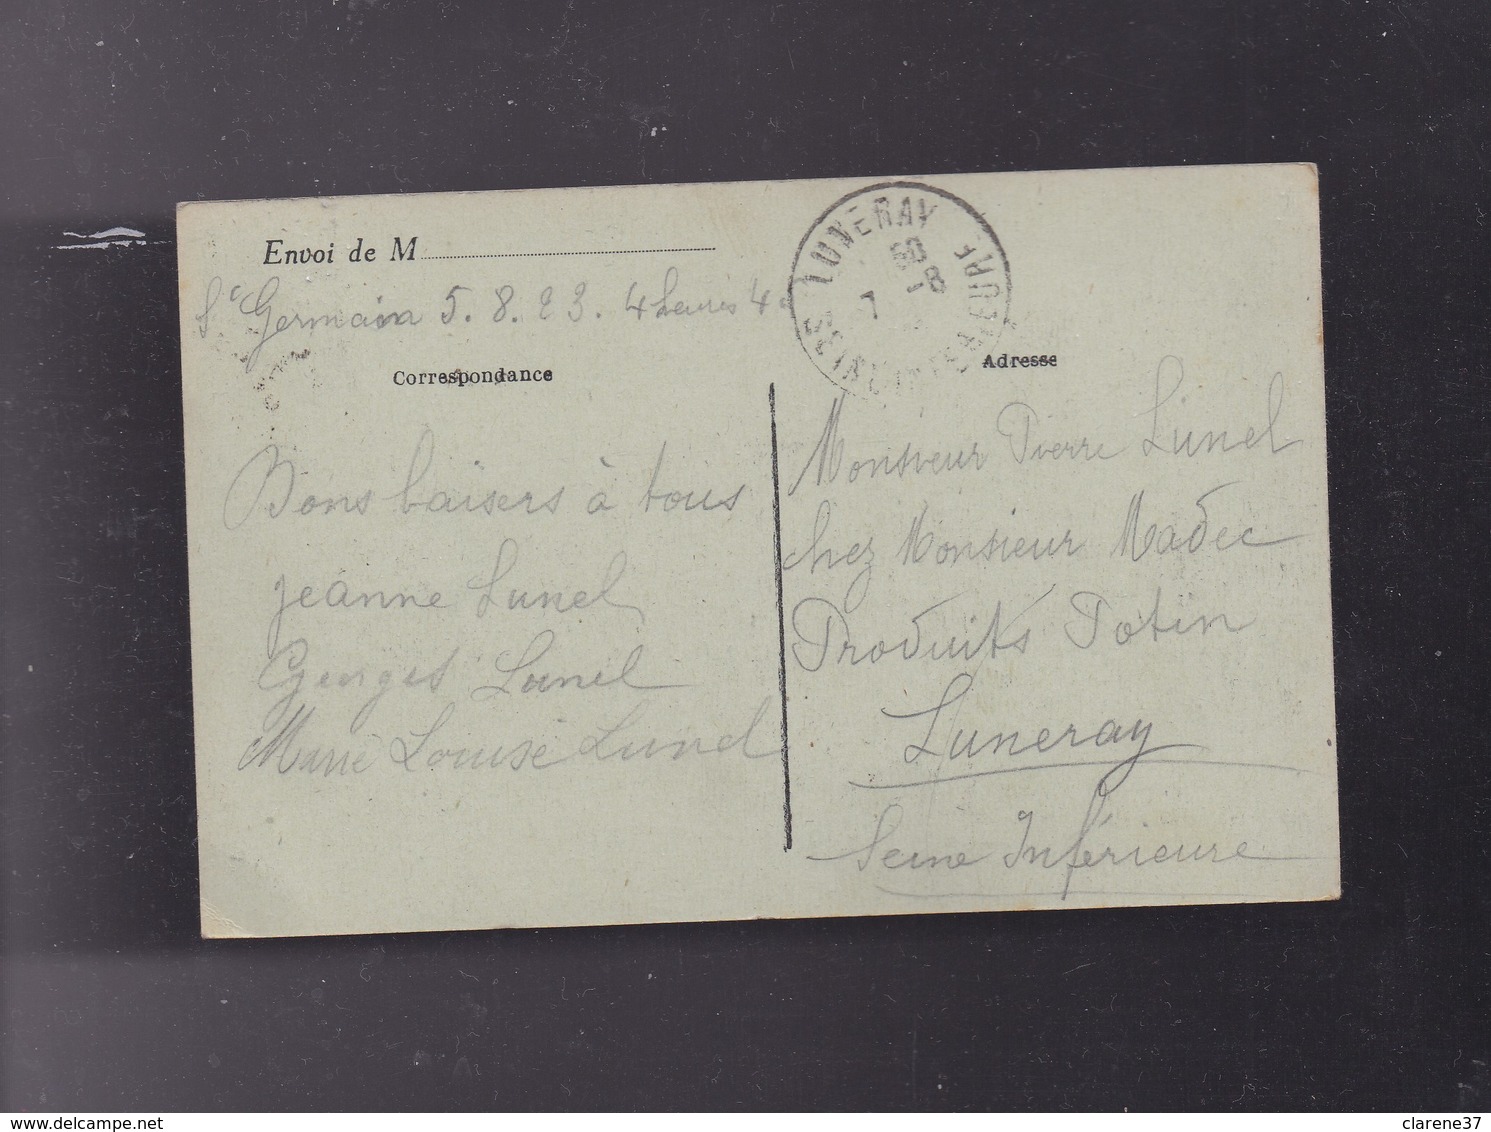 Envoi de M
St Germain 5. 8. 23. 4 heures 4
Correspondance
Bons baisers à tous
Jeanne Lunel
Georges Lunel
Marie Louise Lunel
LUNERAY
7 -8
SEINE INFRE
Adresse
Monsieur Pierre Lunel
chez Monsieur Madec
Produits Potin
Luneray
Seine Inférieure
www.delcampe.net
clarene37